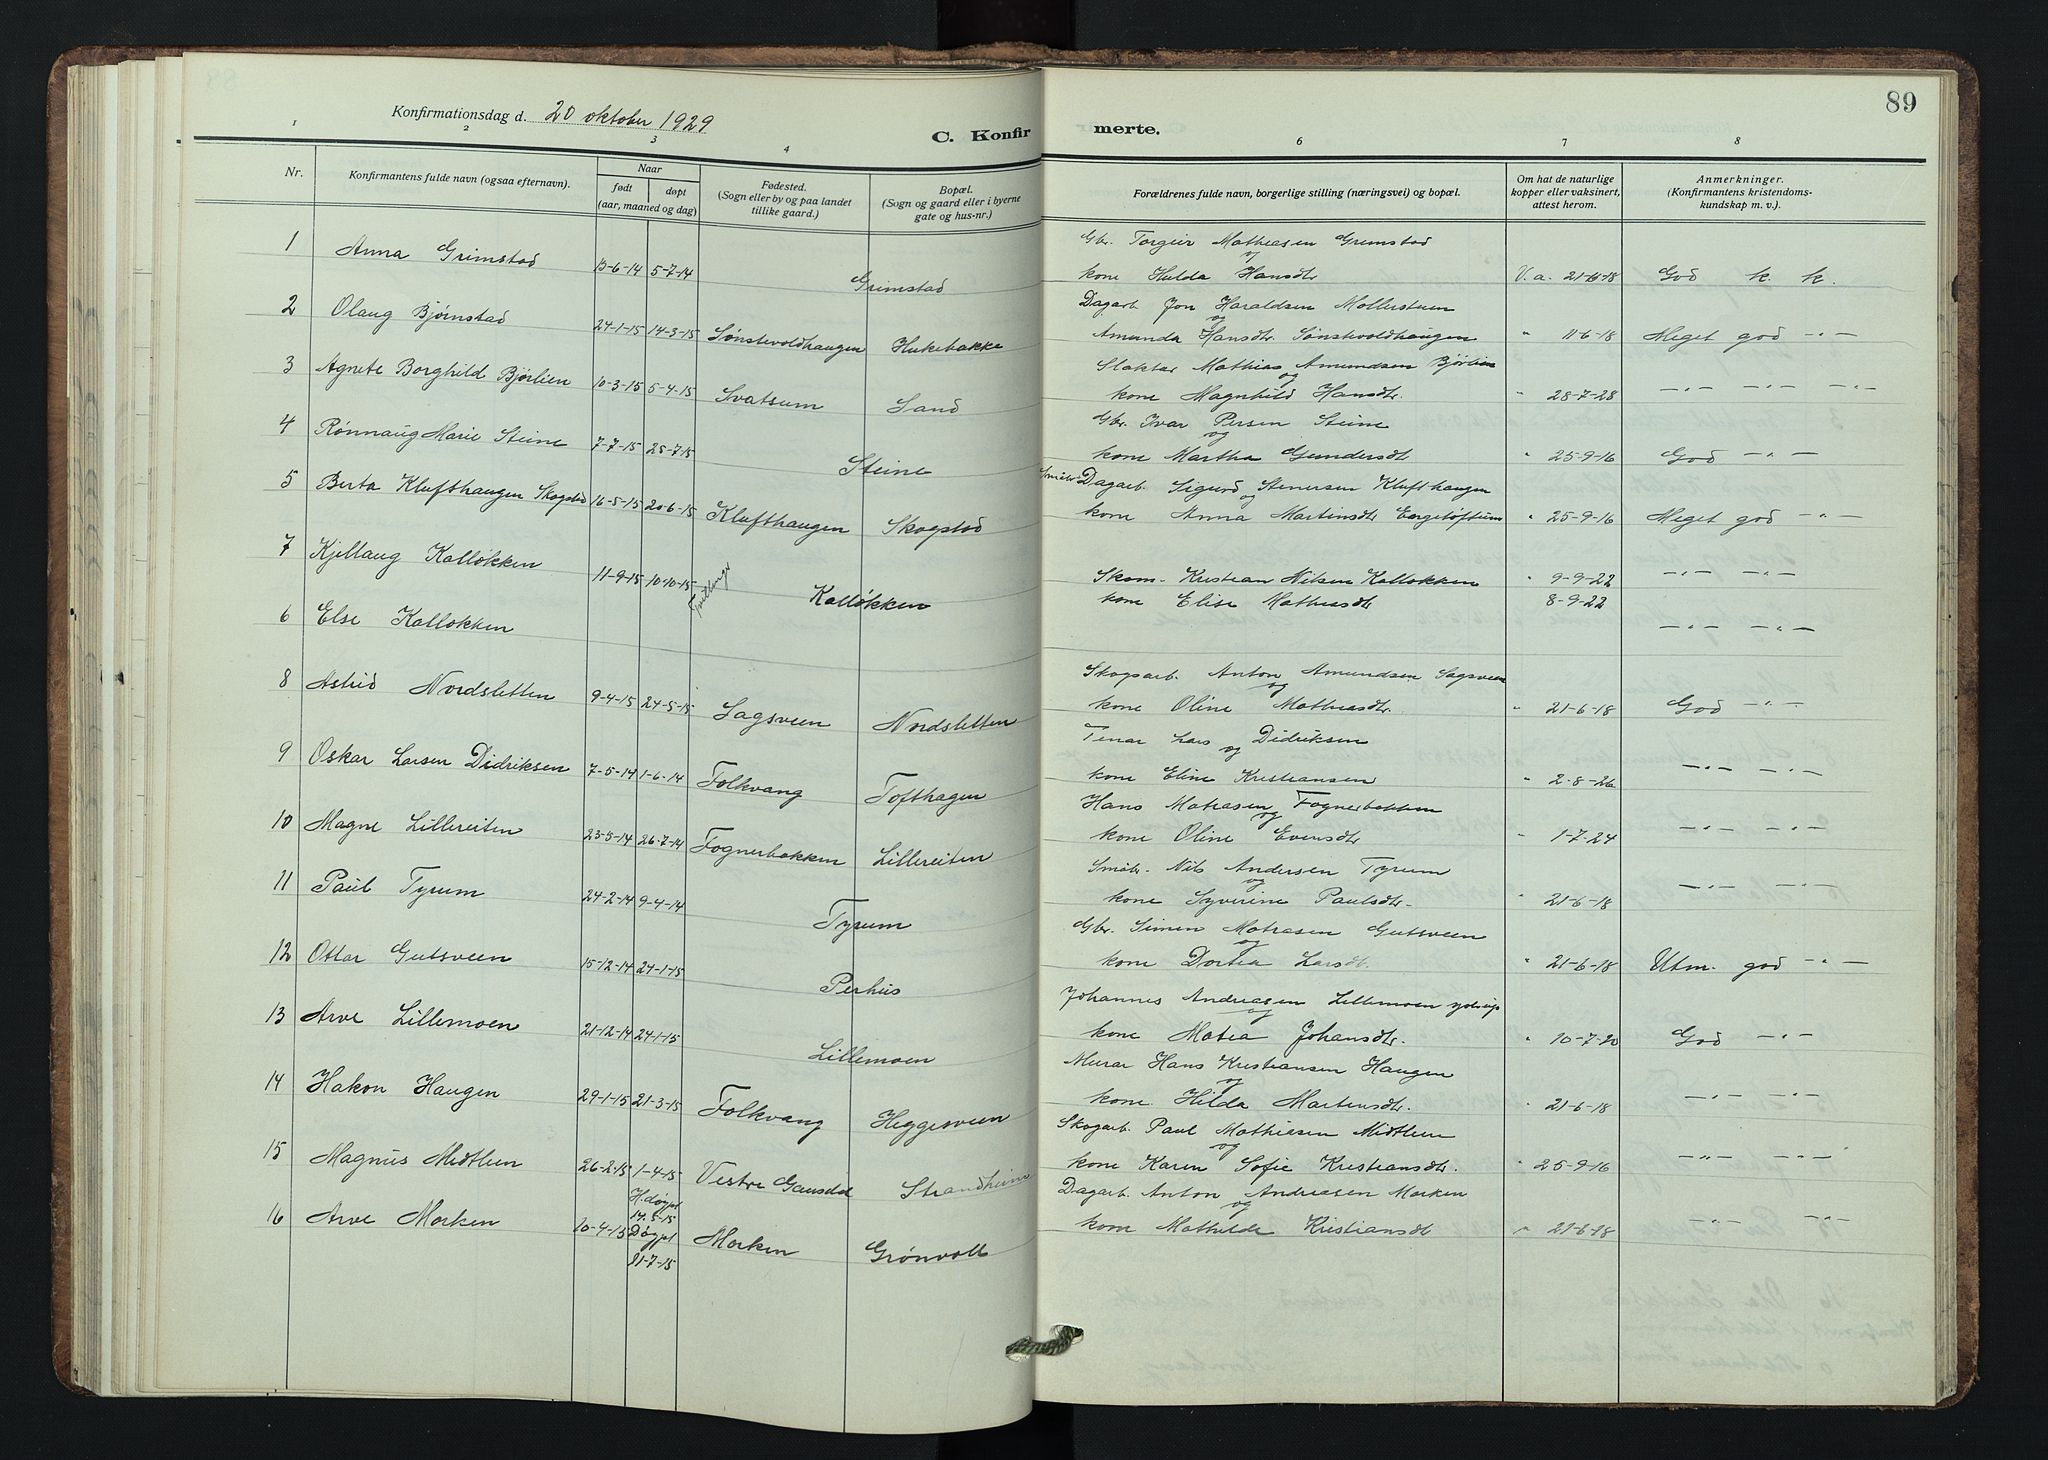 89
Konfirmationsdag d. 20 oktober 1929
C. Konfirmerte.
1 2 3 4 6 7 8
Nr. Konfirmantens fulde navn (ogsaa efternavn). Naar født døpt (aar, maaned og dag) Fødested. (Sogn eller by og paa landet tillike gaard.) Bopæl. (Sogn og gaard eller i byerne gate og hus-nr.) Forældrenes fulde navn, borgerlige stilling (næringsvei) og bopæl. Om hat de naturlige kopper eller vaksinert, attest herom. Anmerkninger. (Konfirmantens kristendomskundskap m. v.).
1 Anna Grimstad 13-6-14 5-7-14 Grimstad Gbr. Torgeir Mathiasen Grimstad
og
kone Hulda Hansdtr V.a. 21-6-18 God k. k.
2 Olaug Bjørnstad 24-1-15 14-3-15 Sønstevoldhaugen Hukebakke Dagarb. Jon Haraldsen Mollerstuen
og
Amunda Hansdtr. Sønstevoldhaugen " 11-6-18 Meget god -"-
3 Agnete Borghild Bjørlien 10-3-15 5-4-15 Svatsum Land Slakter Mathias Amundsen Bjørlien
og
kone Magnhild Hansdtr. " 28-7-28 -"- -"-
4 Rønnaug Marie Steine 7-7-15 25-7-15 Steine Gbr. Ivar Persen Steine
og
kone Martha Gundersdtr " 25-9-16 God -"-
5 Berta Klufthaugen Skogstad 16-5-15 20-6-15 Klufthaugen Skogstad Småbr. Dagarb. Sigurd Stenersen Klufthaugen
og
kone Anna Martinsdtr " 25-9-16 Meget god -"-
7 Kjellaug Kalløkken 11-9-15 10-10-15 Tvillinger Kalløkken Skom. Kristian Nilsen Kalløkken " 9-9-22 -"- -"-
kone Elise Mathiasdtr 8-9-22
6 Else Kalløkken -"- -"-
8 Astrid Nordsletten 9-4-15 24-5-15 Sagsveen Nordsletten Skogsarb. Anton Amundsen Sagsveen
og
kone Oline Mathiasdtr. " 21-6-18 God -"-
9 Oskar Larsen Didriksen 7-5-14 1-6-14 Folkvang Tofthagen Tenar Lars Didriksen
og
kone Eline Kristiansen " 2-8-26 -"- -"-
10 Magne Lillereiten 23-5-14 26-7-14 Fognerbakken Lillereiten Hans Matiasen Fognerbakken
og
kone Oline Evensdtr " 1-7-24 -"- -"-
11 Paul Tyrum 24-2-14 9-4-14 Tyrum Småbr. Nils Andersen Tyrum
og
kone Syverine Paulsdtr. " 21-6-18 -"- -"-
12 Ottar Gutsveen 15-12-14 24-1-15 Perhus Gbr. Simen Matiasen Gutsveen
og
kone Dortea Larsdt. " 21-6-18 Utm. god -"-
13 Arve Lillemoen 21-12-14 24-1-15 Lillemoen Johannes Andreasen Lillemoen
og
kone Matea Johansdtr. " 10-7-20 God -"-
14 Hakon Haugen 29-1-15 21-3-15 Folkvang Heggesveen Murar Hans Kristiansen Haugen
og
kone Hilda Martensdtr. " 21-6-18 -"- -"-
15 Magnus Midtlien 26-2-15 1-4-15 Vestre Gausdal Strandheim Skogarb. Paul Mathiesen Midtlien
og
kone Karen Sofie Kristiansdtr. " 25-9-16 -"- -"-
16 Arve Morken 10-4-15 H.døpt 14.5-15 Døpt 11-7-15 Morken Grønvoll Dagarb. Anton Andreasen Morken
og
kone Mathilde Kristiansdt " 21-6-18 -"- -"-